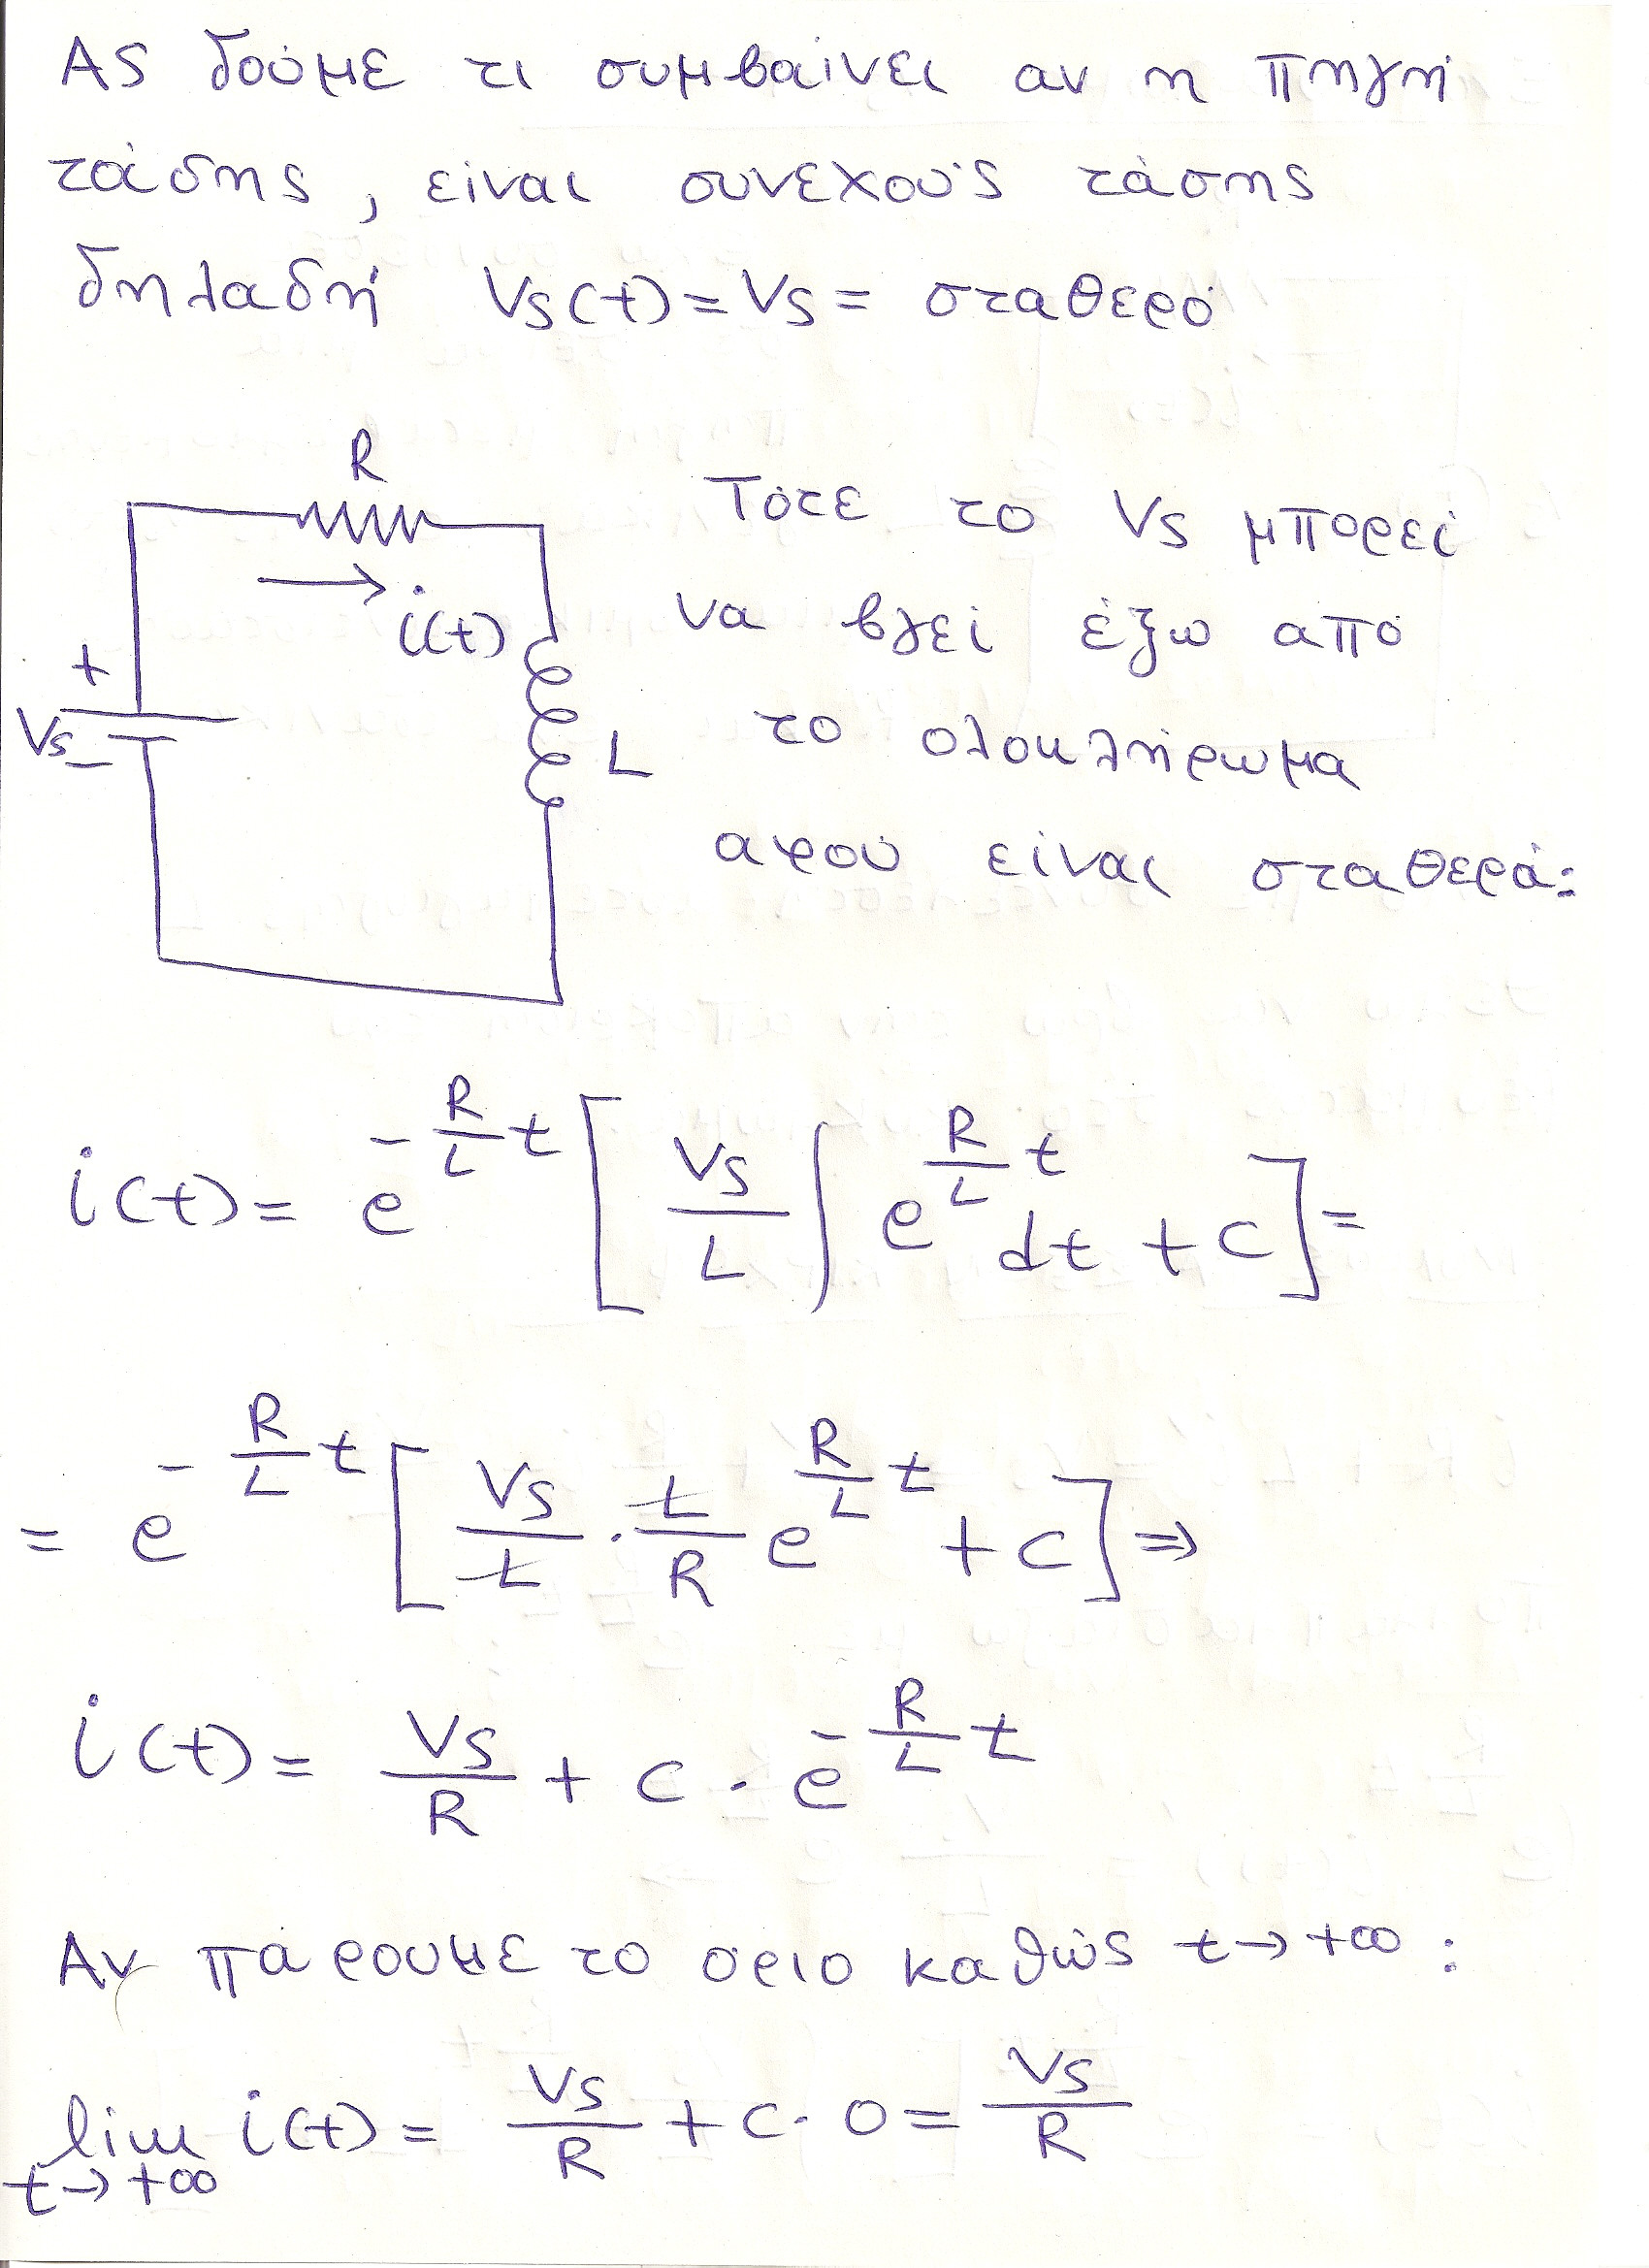 Ας δούμε τι συμβαίνει αν η πηγή
τάσης, είναι συνεχούς τάσης
δηλαδή Vs(t) = Vs = σταθερό
R
i(t)
+
Vs
-
L
Τότε το Vs μπορεί
να βγεί έξω από
το ολοκλήρωμα
αφού είναι σταθερά:
i(t) = e^{-\frac{R}{L}t} [ \frac{Vs}{L} ∫ e^{\frac{R}{L}t} dt + c ] =
= e^{-\frac{R}{L}t} [ \frac{Vs}{L} · \frac{L}{R} e^{\frac{R}{L}t} + c ] ⇒
i(t) = \frac{Vs}{R} + c · e^{-\frac{R}{L}t}
Αν πάρουμε το όριο καθώς t → +∞ :
lim_{t → +∞} i(t) = \frac{Vs}{R} + c · 0 = \frac{Vs}{R}